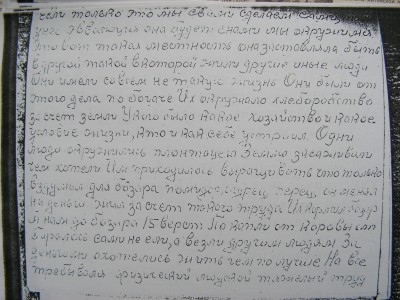 если только это мы своими сделаем сами
она будет с нами мы окружим на
эти вот такая местность она заставляла быть
в другой такой в которой жили другие иные люди
Они имели совсем не такую жизнь Они были от
этого дела по богаче Их окружало хлеборобство
за счет земли У кого было какое хозяйство и какое
условие жизни, кто и как себе устроил Одни
люди окружились Землю засаживали
чем хотели Им приходилось выращивать что только
для базара помидор огурец перец, он менял
на деньги жил за счет такого труда Их кормил базар
а нам до базара 15 верст По капли от коровы от
сами не ели, а везли другим людям За
деньгами охотились жить чем по лучше На все
требовался физический людской тяжелый труд